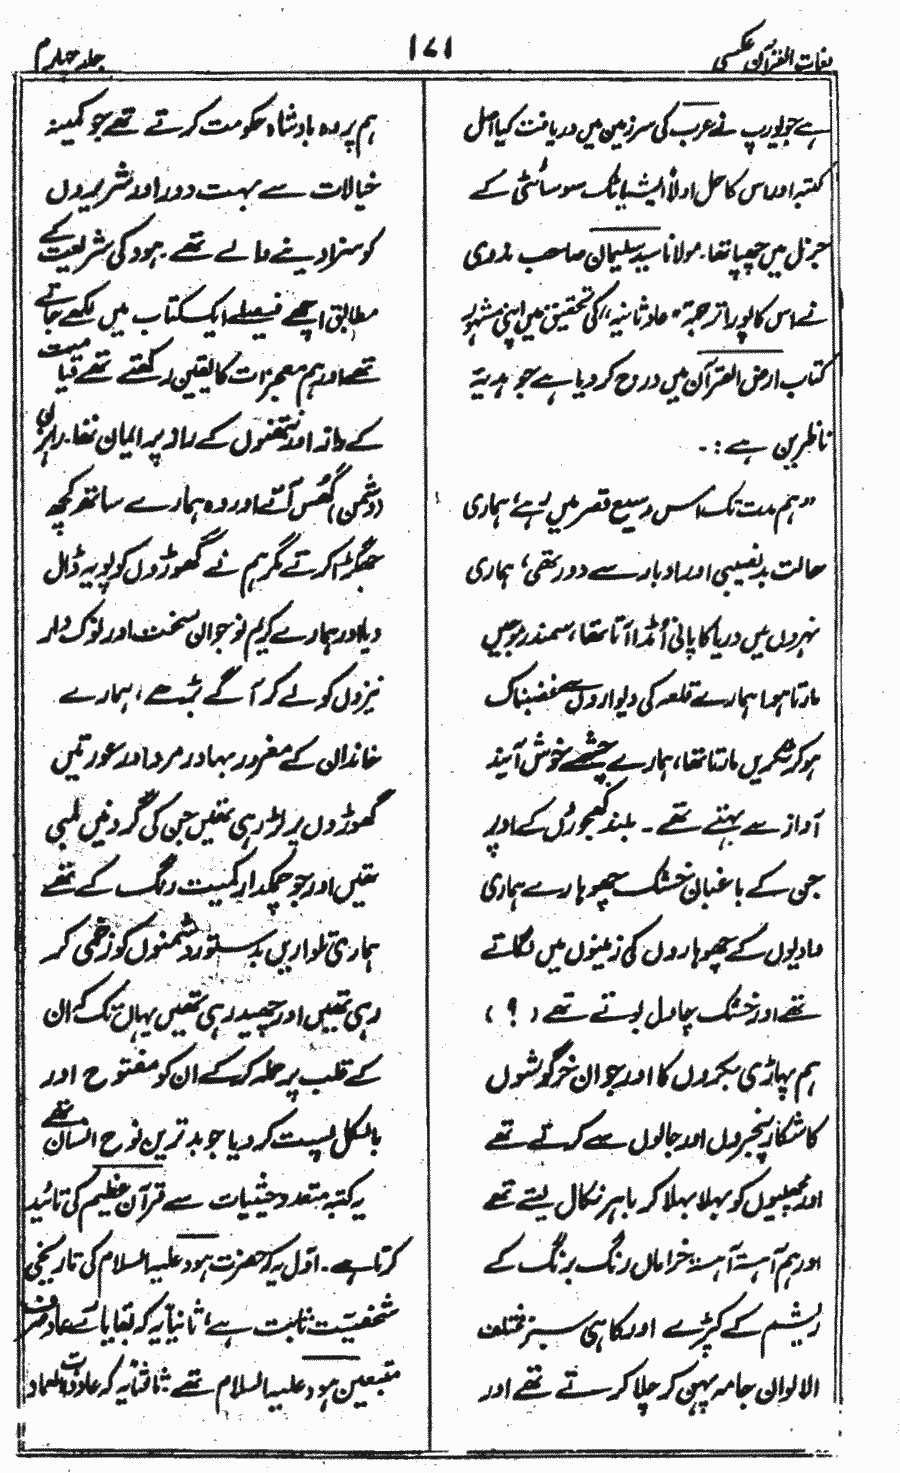 لغات القرآن عکسی
۱۷۱
جلد چہارم
ہے جو یورپ نے عرب کی سرزمین میں دریافت کیا اصل
کتبہ اور اس کا حل اولاً ایشیاٹک سوسائٹی کے
جرنل میں چھپا تھا۔ مولانا سید سلیمان صاحب ندوی
نے اس کا پورا ترجمہ "عاد ثانیہ" کی تحقیق میں اپنی مشہور
کتاب ارض القرآن میں درج کر دیا ہے جو ہدیۂ
ناظرین ہے :۔
"ہم مدت تک اس وسیع قصر میں رہے، ہماری
حالت بدنصیبی اور ادبار سے دور تھی، ہماری
نہروں میں دریا کا پانی اُمڈا آتا تھا، سمندر موجیں
مارتا ہوا ہمارے قلعہ کی دیواروں سے غضبناک
ہو کر ٹکریں مارتا تھا، ہمارے چشمے خوش آیند
آواز سے بہتے تھے ۔ بلند کھجوروں کے اوپر
جن کے باغبان خشک چھوہارے ہماری
وادیوں کے چھوہاروں کی زمینوں میں لگاتے
تھے اور خشک چاول بوتے تھے ( ؟ )
ہم پہاڑی بکروں کا اور جوان خرگوشوں
کا شکار پنجروں اور جالوں سے کرتے تھے
اور مچھلیوں کو بہلا بہلا کر باہر نکال لیتے تھے
اور ہم آہستہ آہستہ خراماں رنگ برنگ کے
ریشم کے کپڑے اور کاہی سبز مختلف
الالوان جامہ پہن کر چلا کرتے تھے اور
ہم پر وہ بادشاہ حکومت کرتے تھے جو کمینہ
خیالات سے بہت دور اور شریروں
کو سزا دینے والے تھے ۔ ہود کی شریعت کے
مطابق اچھے فیصلے ایک کتاب میں لکھے جاتے
تھے اور ہم معجزات کا یقین رکھتے تھے قیامت
کے راز اور نتھنوں کے راز پر ایمان تھا۔ راہزن
(دشمن) گھُس آئے اور وہ ہمارے ساتھ کچھ
جھگڑا کرتے مگر ہم نے گھوڑوں کو پویہ ڈال
دیا اور ہمارے کریم نوجوان سخت اور نوک دار
نیزوں کو لے کر آگے بڑھے، ہمارے
خاندان کے مغرور بہادر مرد اور عورتیں
گھوڑوں پر لڑ رہی تھیں جن کی گردنیں لمبی
تھیں اور جو چمکدار کمیت رنگ کے تھے
ہماری تلواریں بدستور دشمنوں کو زخمی کر
رہی تھیں اور چھید رہی تھیں یہاں تک کہ ان
کے قلب پر حملہ کر کے ان کو مفتوح اور
بالکل پست کر دیا جو بدترین نوع انسان تھے
یہ کتبہ متعدد حیثیات سے قرآن عظیم کی تائید
کرتا ہے ۔ اوّل یہ کہ حضرت ہود علیہ السلام کی تاریخی
شخصیّت ثابت ہے، ثانیاً یہ کہ بقایائے عاد صرف
متبعین ہود علیہ السلام تھے ثالثاً یہ کہ عاد ذات العماد